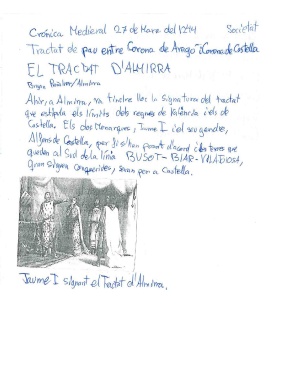 Crónica Medieval 27 de Març del 1244 Societat
Tractat de pau entre Corona de Aragó i Corona de Castella
EL TRACTAT D'ALMIRRA
Bryan /Almirra
Ahir, a Almirra, va tindre lloc la signatura del tractat
que estipula els límits dels regnes de València i els de
Castella. Els dos Monarques, Jaume I i el seu gendre,
Alfons de Castella, per fi s'han posat d'acord i les terres que
queden al Sud de la línia BUSOT-BIAR-VILAJOIOSA,
quan siguen conquerides, seran per a Castella.
Jaume I signant el Tractat d'Almirra.